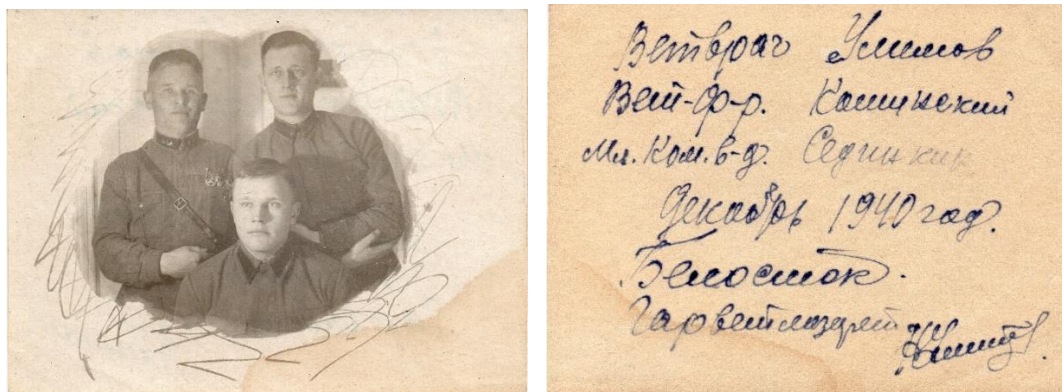 Ветврач Улимов
Вет-ф-р. Кошинский
Мл. Ком. в-д. Сединкин
Декабрь 1940 год.
Белосток.
Гарветлазарет